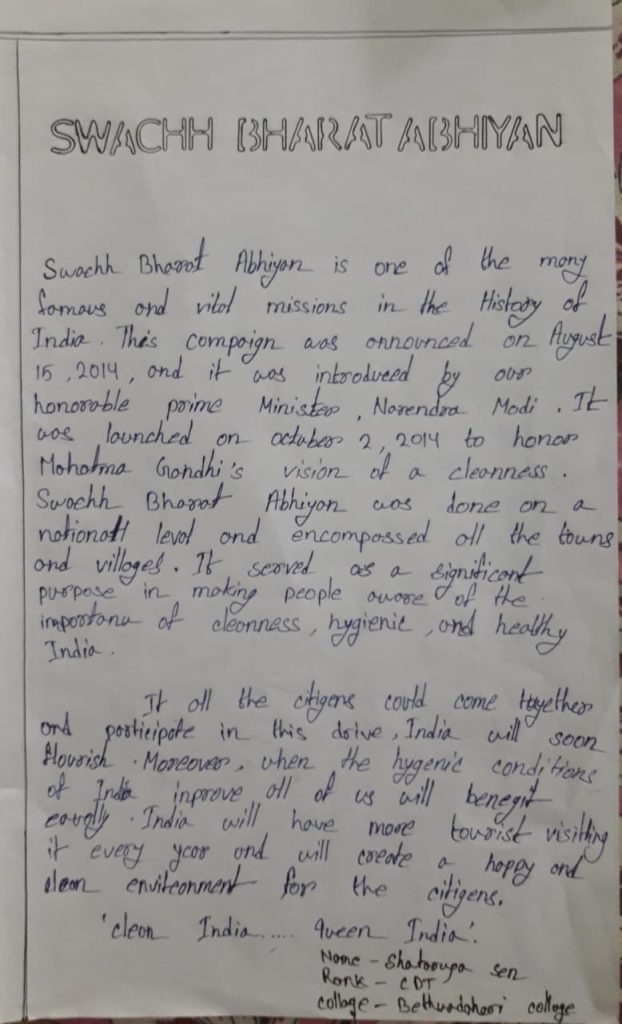 SWACHH BHARAT ABHIYAN
Swachh Bharat Abhiyan is one of the many
famous and vital missions in the History of
India. This campaign was announced on August
15, 2014, and it was introduced by our
honorable prime Minister, Narendra Modi. It
was launched on october 2, 2014 to honor
Mahatma Gandhi's vision of a cleanness.
Swachh Bharat Abhiyan was done on a
national level and encompassed all the towns
and villages. It served as a significant
purpose in making people aware of the
importana of cleanness, hygienic, and healthy
India.
If all the citizens could come together
and participate in this drive, India will soon
flourish. Moreover, when the hygenic conditions
of India inprove all of us will benegit
eaually. India will have more tourist visitting
it every year and will create a happy and
clean envitconment for the citizens.
'clean India..... queen India'.
Name - Shataoupa sen
Rank - CDT
collage - Bethuadahari collage